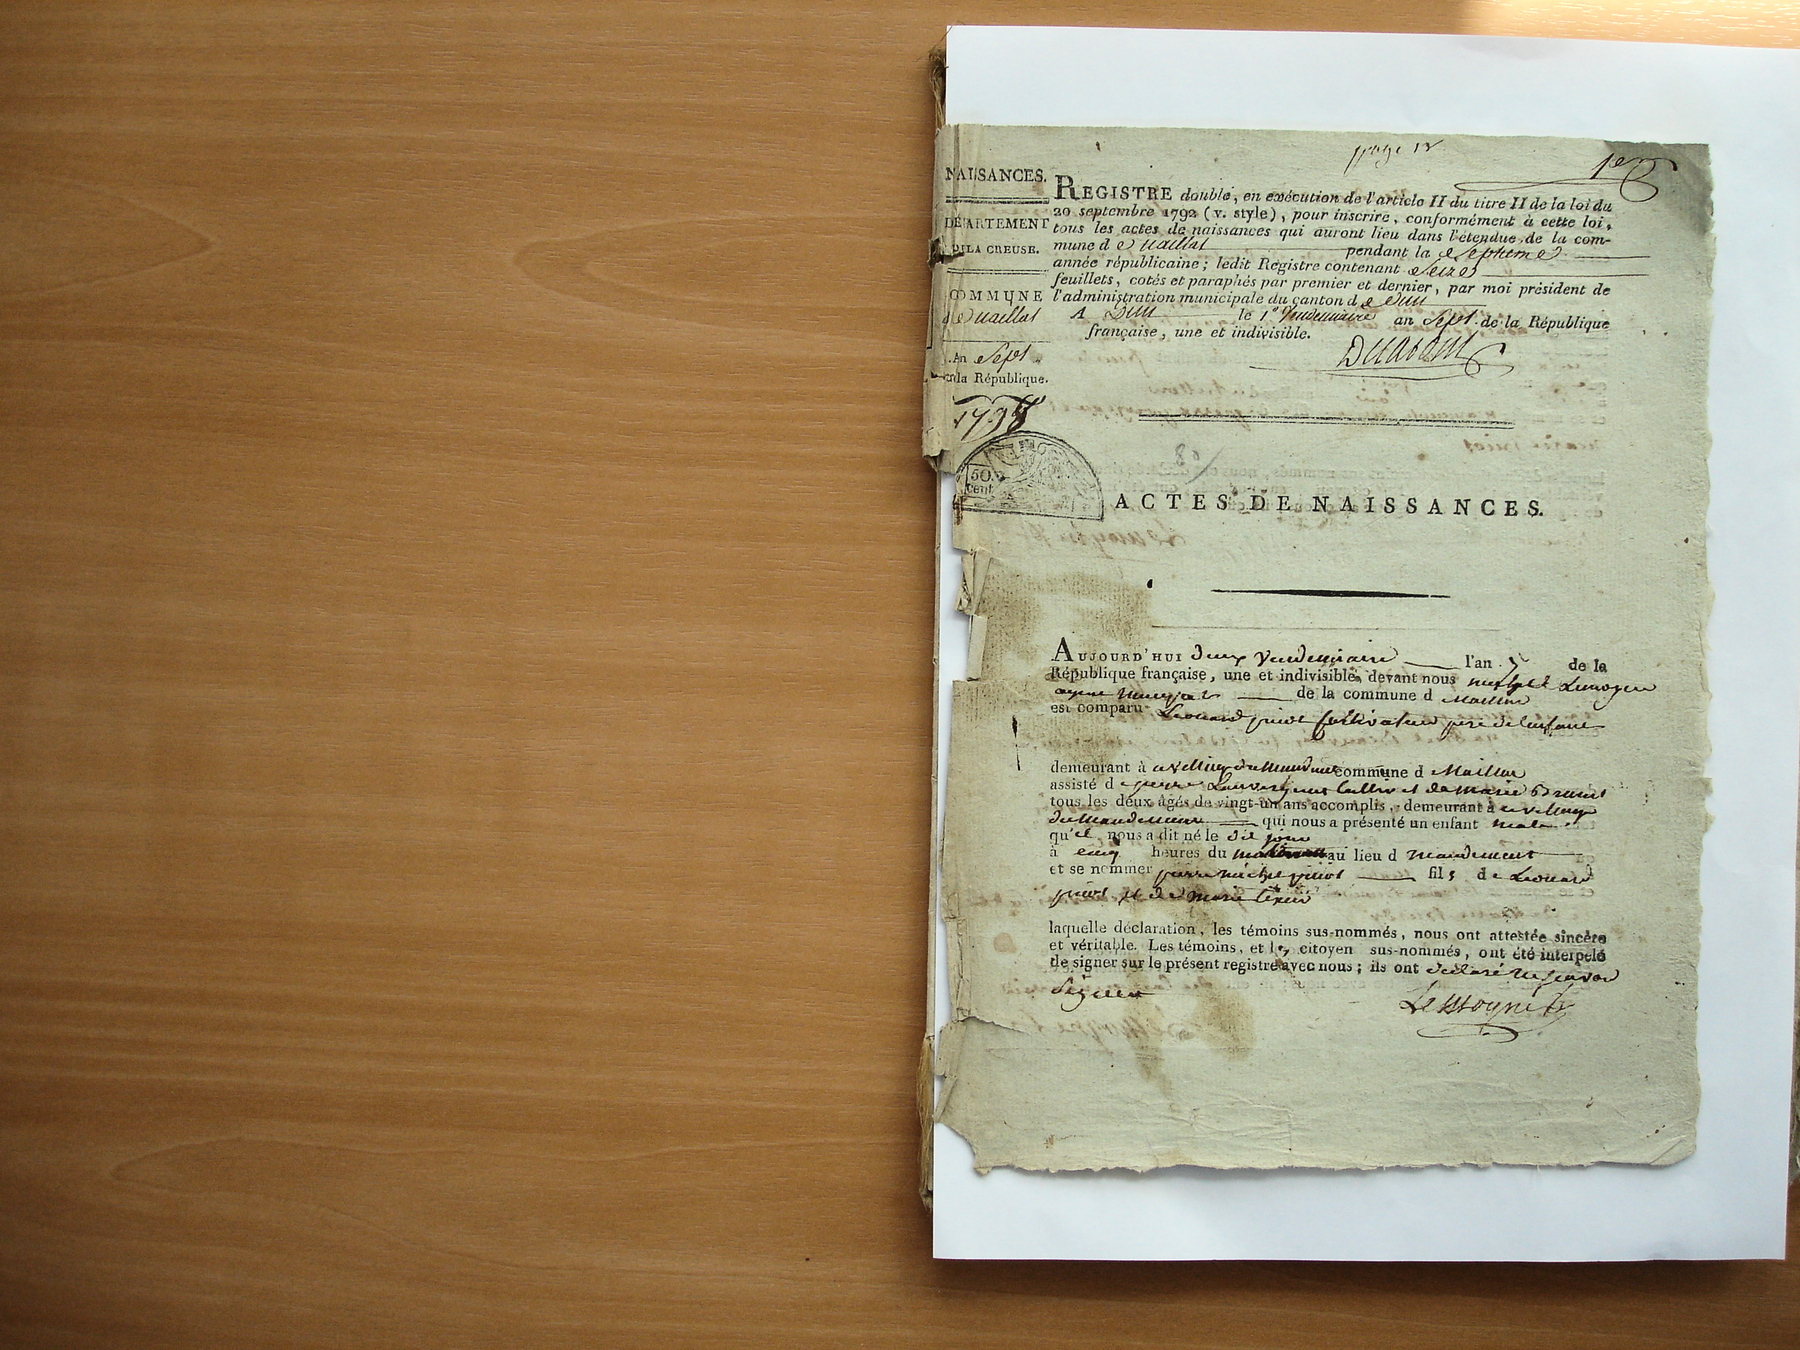 page 12
1er
NAISSANCES.
DÉPARTEMENT
DE LA CREUSE.
COMMUNE
de Naillat
An Sept
de la République.
1798
50.
cent.
REGISTRE double, en exécution de l'article II du titre II de la loi du
20 septembre 1792 (v. style), pour inscrire, conformément à cette loi,
tous les actes de naissances qui auront lieu dans l'étendue de la com-
mune d e Naillat pendant la Septieme
année républicaine; ledit Registre contenant Seize
feuillets, cotés et paraphés par premier et dernier, par moi président de
l'administration municipale du canton d e Dun
A Dun le 1er Vendemiaire an Sept de la République
française, une et indivisible.
ACTES DE NAISSANCES.
AUJOURD'HUI deux Vendemiaire l'an 7 de la
République française, une et indivisible, devant nous Lemoyne
agent de la commune d Naillat
est comparu Léonard pinot cultivateur père de l'enfant
demeurant à au village du Mandement commune d Naillat
assisté d e pierre et de Marie Brunet
tous les deux âgés de vingt-un ans accomplis, demeurant à au village
du Mandement qui nous a présenté un enfant male
qu'il nous a dit né le dit jour
à cinq heures du au lieu d Mandement
et se nommer pierre michel pinot fils de Léonard
pinot et de Marie
laquelle déclaration, les témoins sus-nommés, nous ont attestée sincère
et véritable. Les témoins, et le citoyen sus-nommés, ont été interpelé
de signer sur le présent registre avec nous; ils ont déclaré ne savoir
signer
Lemoyne